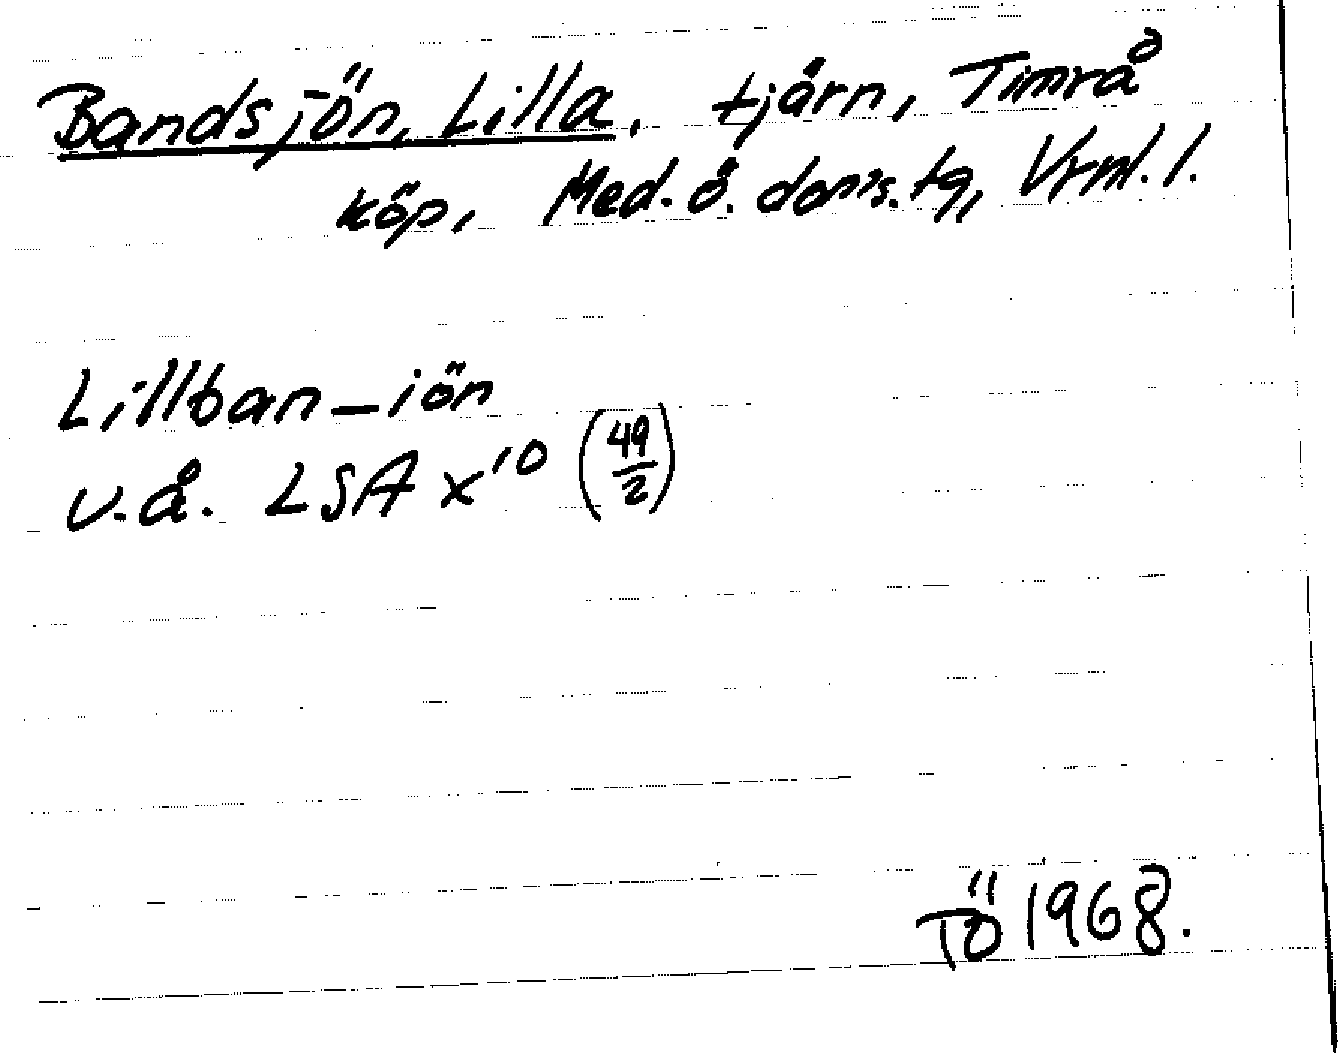 Bandsjön, Lilla, tjärn, Timrå
köp, Med. ö. doms. tg, Vrml. l.
Lillban–iön
u.å. LSA x'⁰ (49/2)
TÖ 1968.